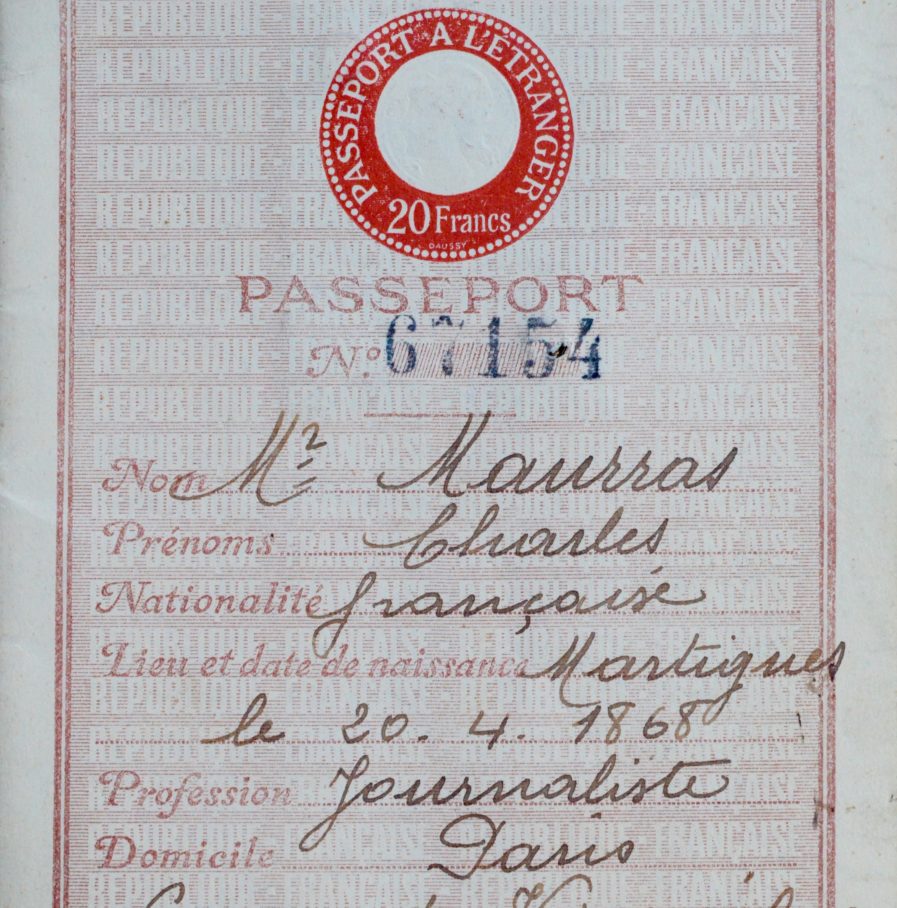 PASSEPORT A L'ETRANGER
20 Francs
DAUSSY
PASSEPORT
Nº 67154
Nom Mr Maurras
Prénoms Charles
Nationalité française
Lieu et date de naissance Martigues
le 20. 4. 1868
Profession Journaliste
Domicile Paris